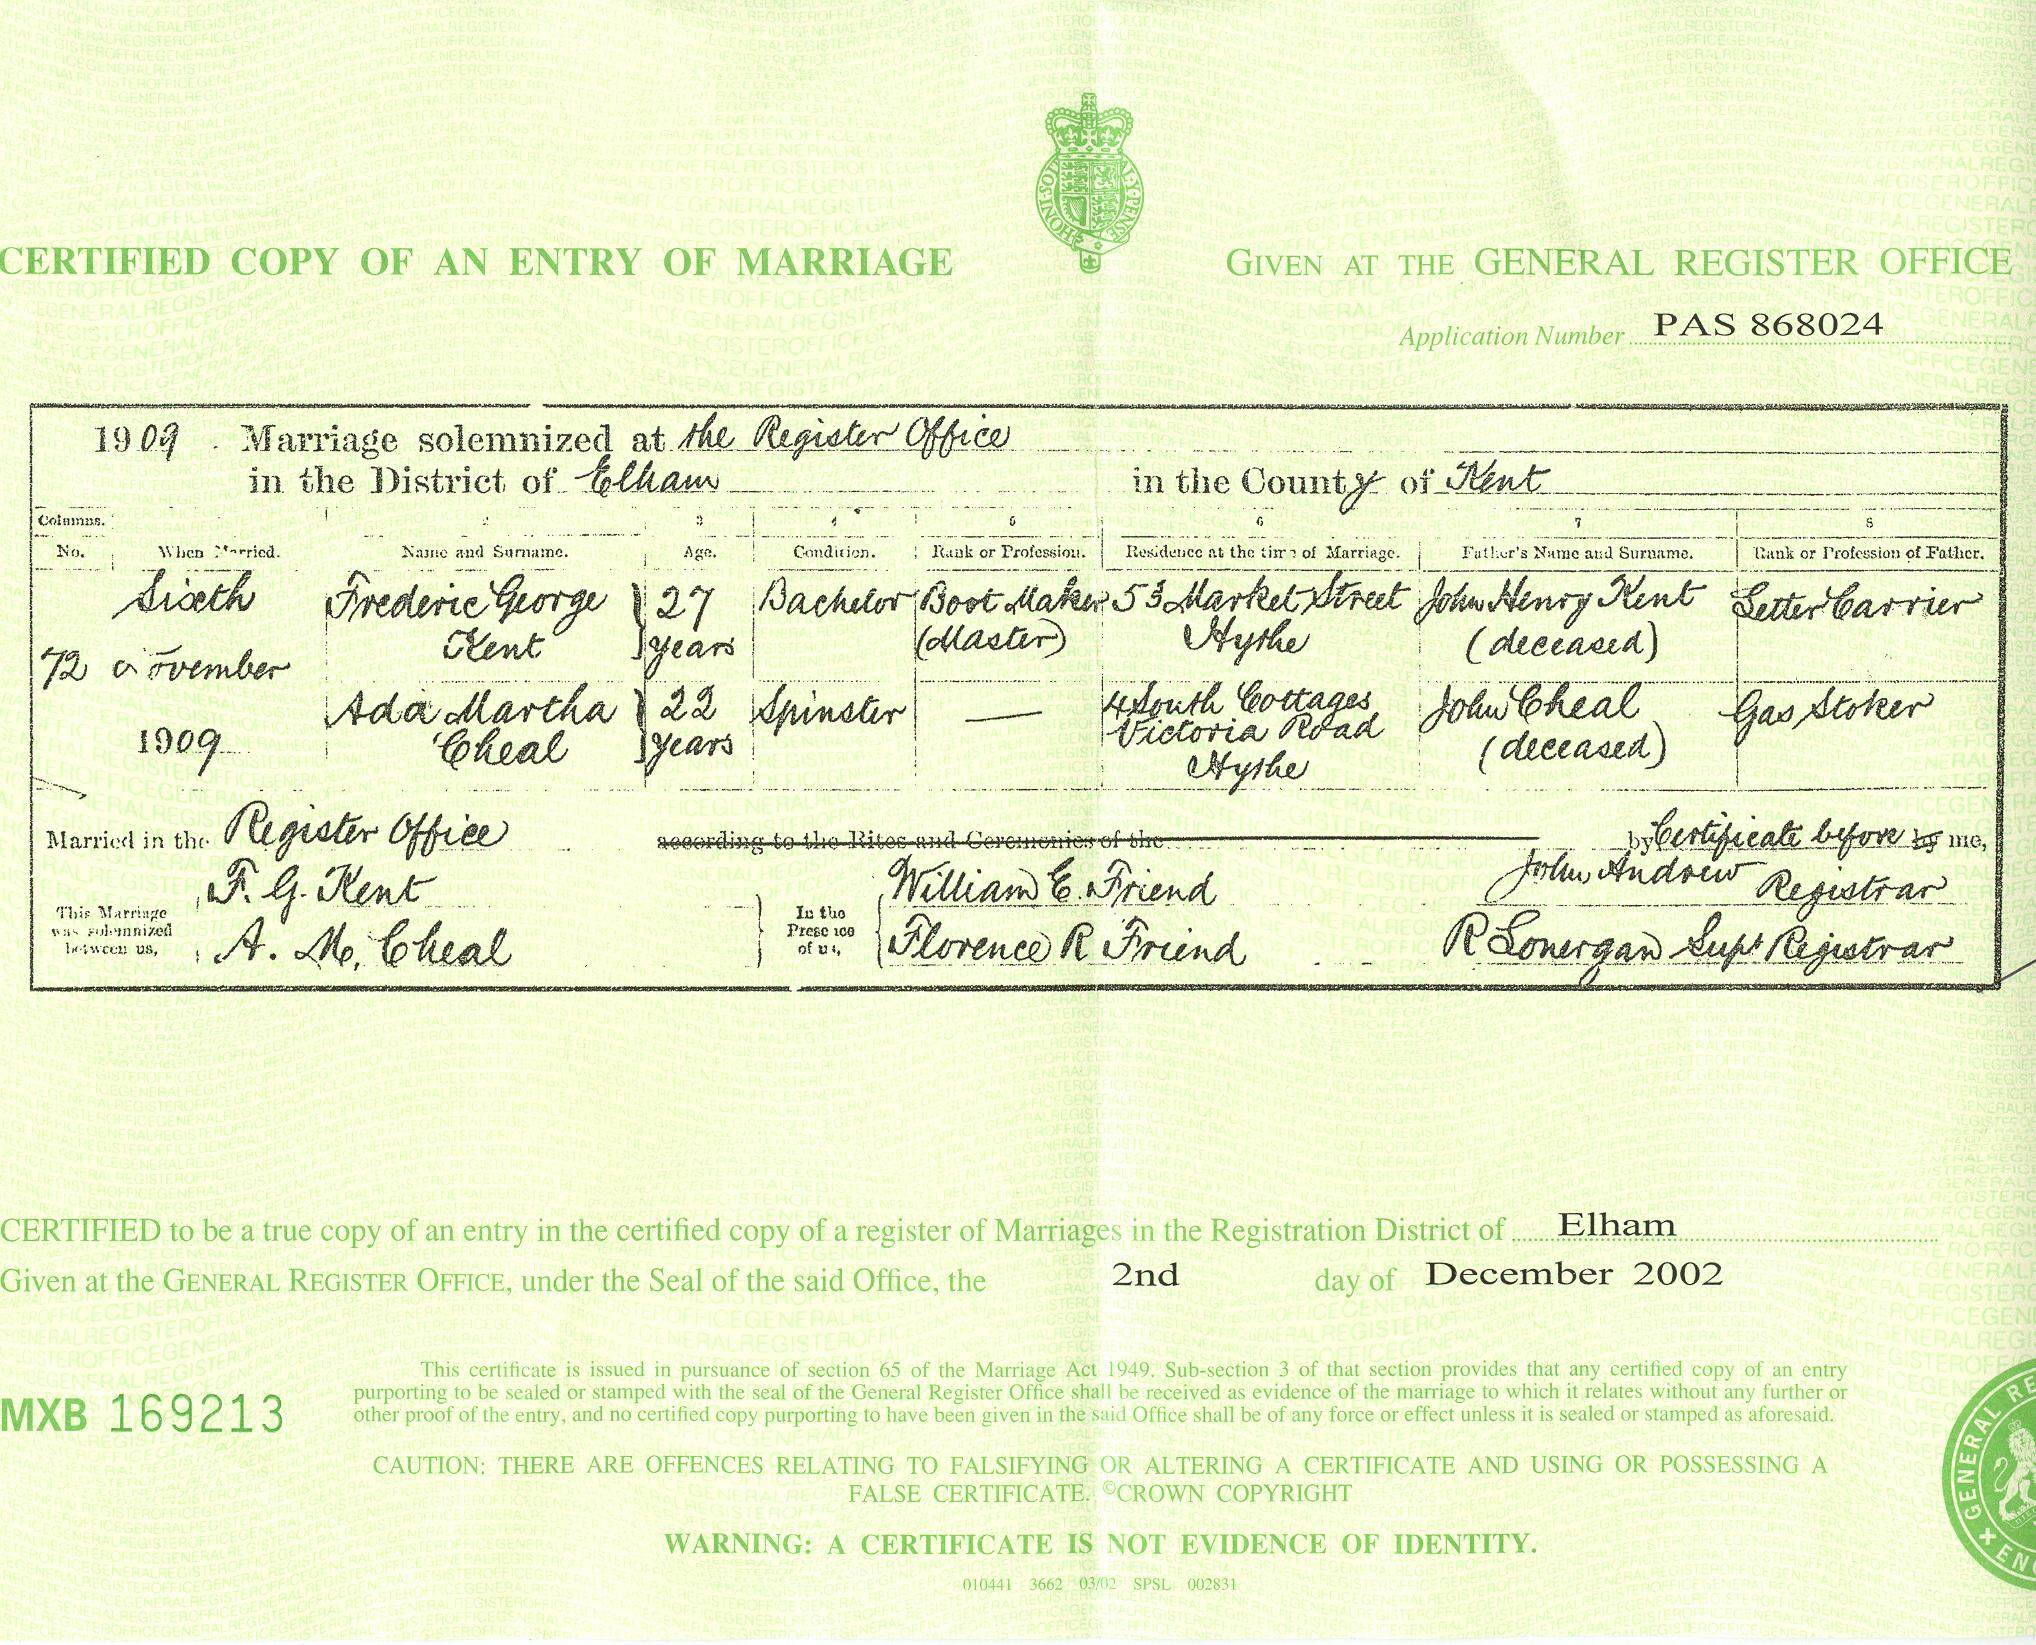 HONI·SOI AL·Y·PENSE
CERTIFIED COPY OF AN ENTRY OF MARRIAGE
GIVEN AT THE GENERAL REGISTER OFFICE
Application Number PAS 868024
1909. Marriage solemnized at the Register Office
in the District of Elham in the County of Kent
Columns. 2 3 4 5 6 7 8
No. When Married. Name and Surname. Age. Condition. Rank or Profession. Residence at the time of Marriage. Father's Name and Surname. Rank or Profession of Father.
Sixth Frederic George 27 Bachelor Boot Maker 53 Market Street John Henry Kent Letter Carrier
Kent years (Master) Hythe (deceased)
72 November
Ada Martha 22 Spinster — 4 South Cottages John Cheal Gas Stoker
1909 Cheal years Victoria Road (deceased)
Hythe
Married in the Register Office according to the Rites and Ceremonies of the by Certificate before by me,
This Marriage was solemnized between us,
F. G. Kent
A. M. Cheal
In the Presence of us,
William E. Friend
Florence R Friend
John Andrew Registrar
R Lonergan Supt Registrar
CERTIFIED to be a true copy of an entry in the certified copy of a register of Marriages in the Registration District of Elham
Given at the GENERAL REGISTER OFFICE, under the Seal of the said Office, the 2nd day of December 2002
MXB 169213
This certificate is issued in pursuance of section 65 of the Marriage Act 1949. Sub-section 3 of that section provides that any certified copy of an entry
purporting to be sealed or stamped with the seal of the General Register Office shall be received as evidence of the marriage to which it relates without any further or
other proof of the entry, and no certified copy purporting to have been given in the said Office shall be of any force or effect unless it is sealed or stamped as aforesaid.
CAUTION: THERE ARE OFFENCES RELATING TO FALSIFYING OR ALTERING A CERTIFICATE AND USING OR POSSESSING A
FALSE CERTIFICATE. ©CROWN COPYRIGHT
WARNING: A CERTIFICATE IS NOT EVIDENCE OF IDENTITY.
010441 3662 03/02 SPSL 002831
GENERAL RE
ENG